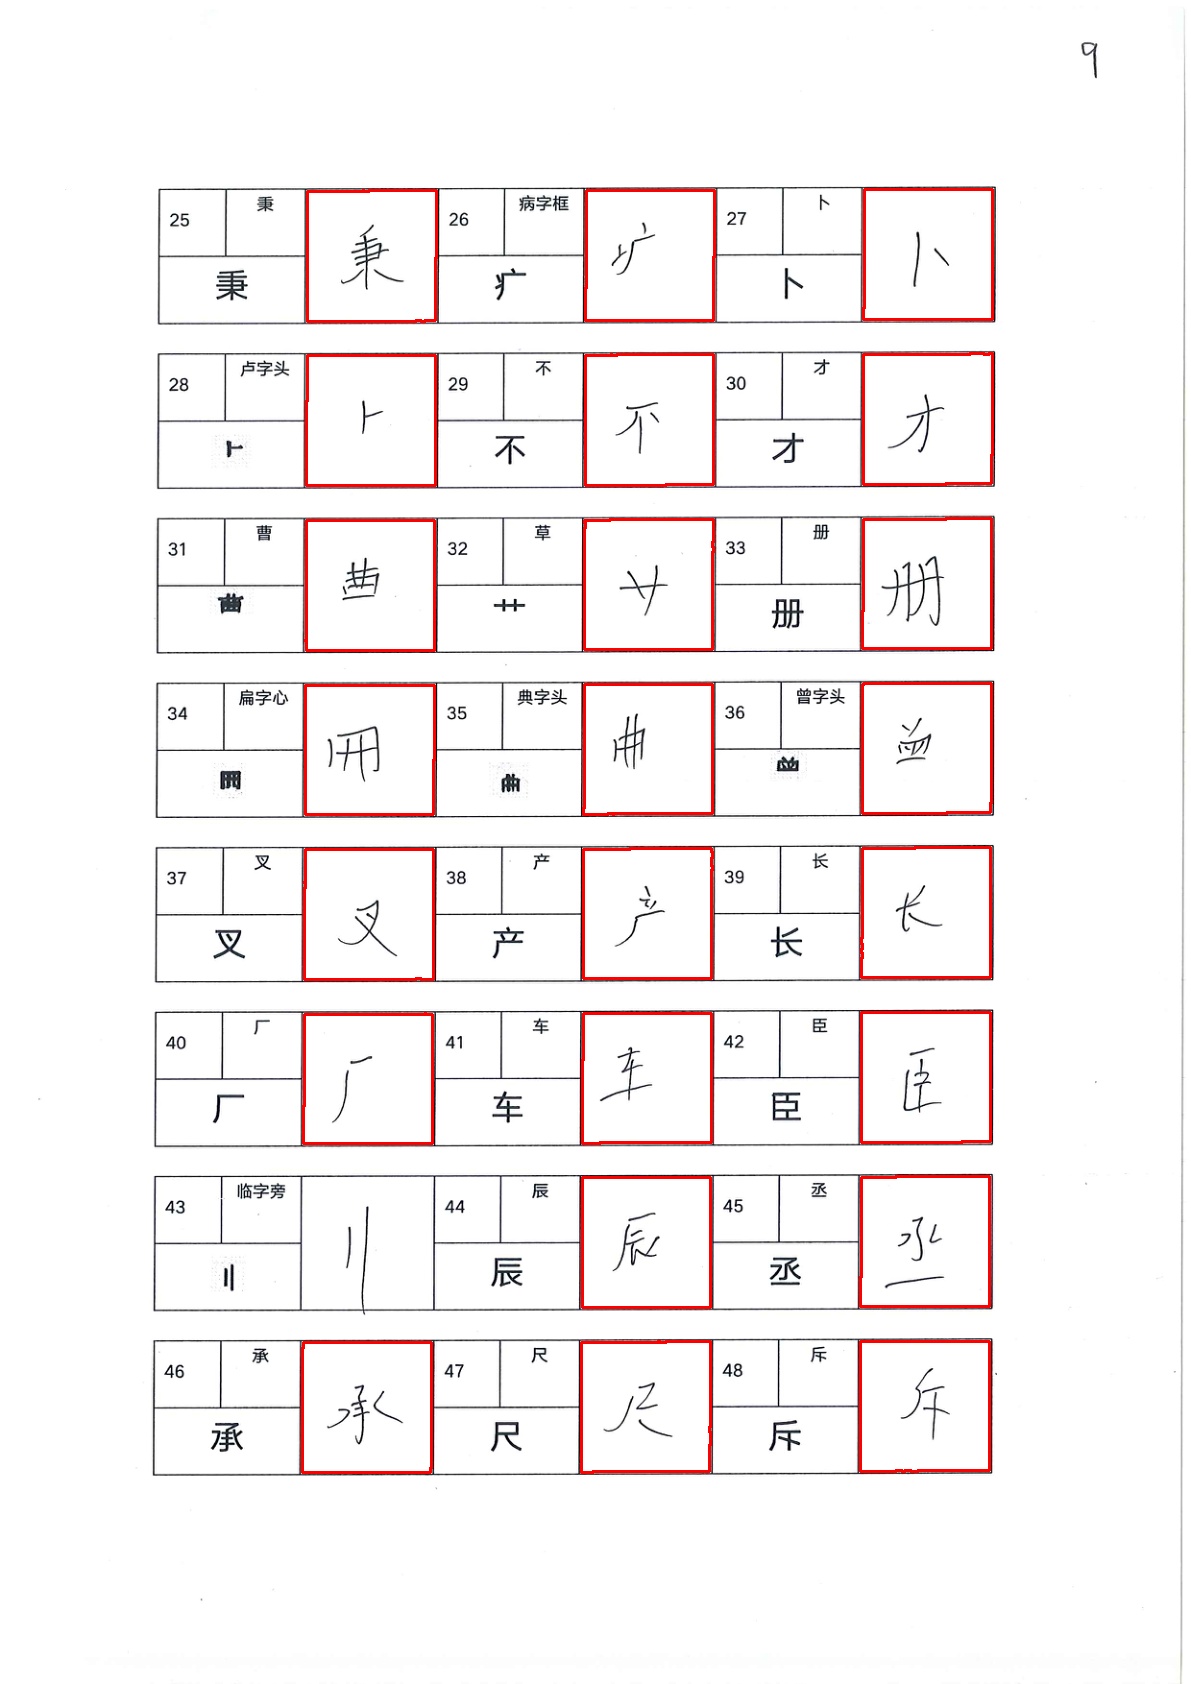 9
25 秉 秉 26 病字框 疒 27 卜 卜
秉 疒 卜
28 卢字头 ⺊ 29 不 不 30 才 才
⺊ 不 才
31 曹 32 草 艹 33 册 册
艹 册
34 扁字心 35 典字头 36 曾字头
37 叉 叉 38 产 产 39 长 长
叉 产 长
40 厂 厂 41 车 车 42 臣 臣
厂 车 臣
43 临字旁 〢 44 辰 辰 45 丞 丞
〢 辰 丞
46 承 承 47 尺 尺 48 斥 斥
承 尺 斥